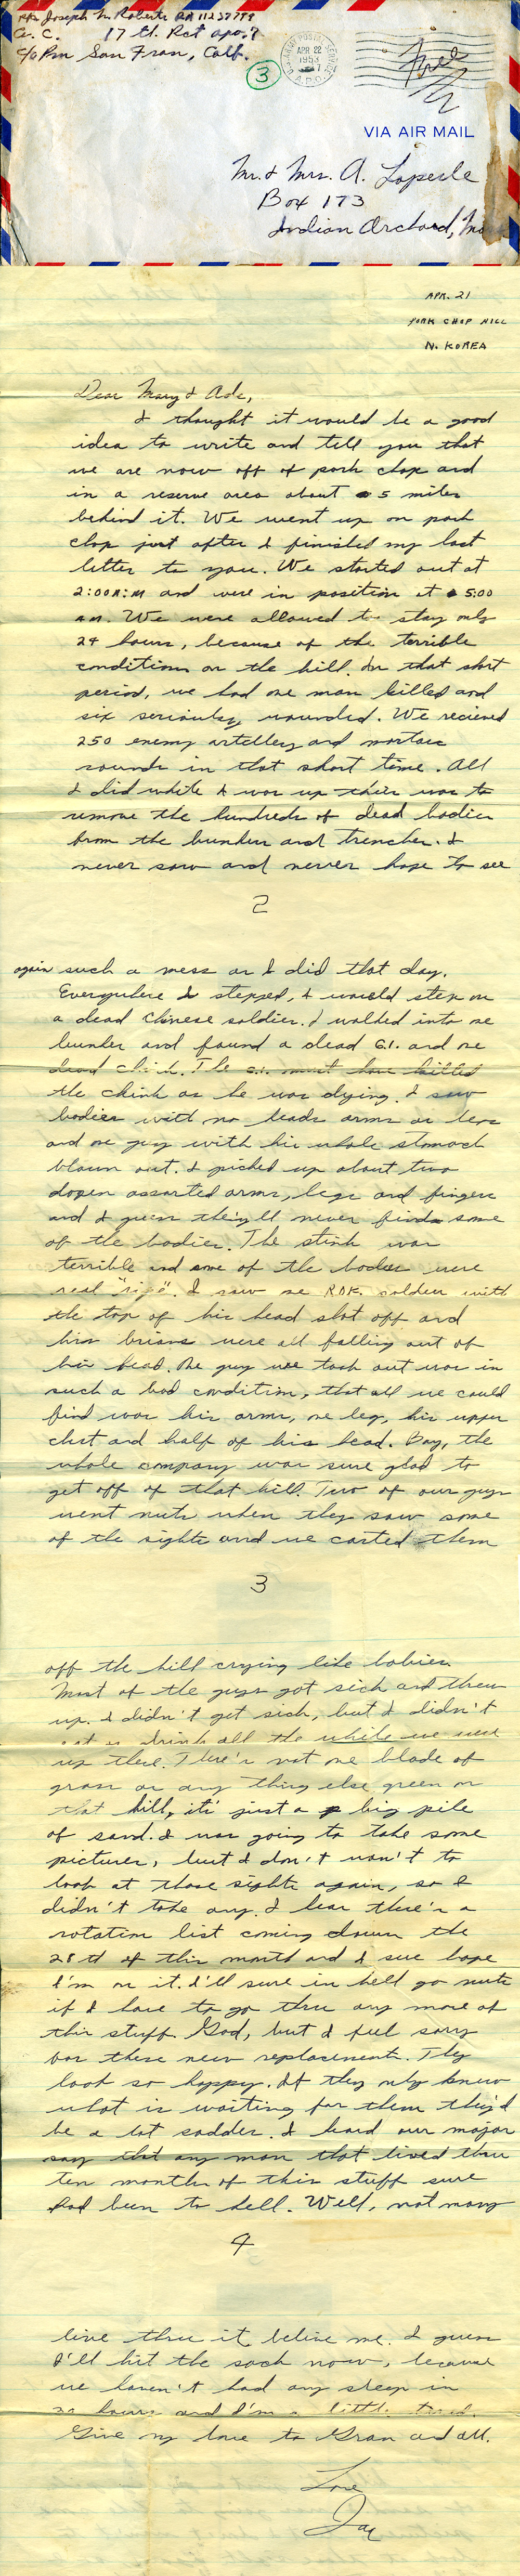 Joseph M. Roberts RA 11237799
Co. C. 17th. Rct apo. 7
c/o Pm San Fran, Calf.
3
APR 22
1953
A.P.O.
Free
VIA AIR MAIL
Mr. & Mrs. A. Laperle
Box 173
Indian Orchard,
APR. 21
PORK CHOP HILL
N. KOREA
Dear Mary & Ade,
I thought it would be a good
idea to write and tell you that
we are now off of pork chop and
in a reserve area about 5 miles
behind it. We went up on pork
chop just after I finished my last
letter to you. We started out at
2:00 A:M and were in position at 5:00
AM. We were allowed to stay only
24 hours, because of the terrible
conditions on the hill. In that short
period, we had one man killed and
six seriously wounded. We recieved
250 enemy artillery and mortar
rounds in that short time. All
I did while I was up their was to
remove the hundreds of dead bodies
from the bunkers and trenches. I
never saw and never hope to see
2
again such a mess as I did that day.
Everywhere I stepped, I would step on
a dead Chinese soldier. I walked into one
bunker and found a dead G.I. and one
dead chink. The G.I. must have killed
the chink as he was dying. I saw
bodies with no heads arms or legs
and one guy with his whole stomach
blown out. I picked up about two
dozen assorted arms, legs and fingers
and I guess they'll never find some
of the bodies. The stink was
terrible and some of the bodies were
real "ripe". I saw one ROK. soldier with
the top of his head shot off and
his brians were all falling out of
his head. One guy we took out was in
such a bad condition, that all we could
find was his arms, one leg, his upper
chest and half of his head. Boy, the
whole company was sure glad to
get off of that hill. Two of our guys
went nuts when they saw some
of the sights and we carted them
3
off the hill crying like babies.
Most of the guys got sick and threw
up. I didn't get sick, but I didn't
eat or drink all the while we were
up there. There's not one blade of
grass or any thing else green on
that hill, it's just a big pile
of sand. I was going to take some
pictures, but I don't won't to
look at those sights again, so I
didn't take any. I hear there's a
rotation list coming down the
28th of this month and I sure hope
I'm on it. I'll sure in hell go nuts
if I have to go thru any more of
this stuff. God, but I feel sorry
for these new replacements. They
look so happy. If they only knew
what is waiting for them they'd
be a lot sadder. I heard our major
say that any man that lived thru
ten months of this stuff sure
had been to hell. Well, not many
4
live thru it, belive me. I guess
I'll hit the sack now, because
we haven't had any sleep in
hours and I'm a little tired.
Give my love to Gram and all.
Love
Joe